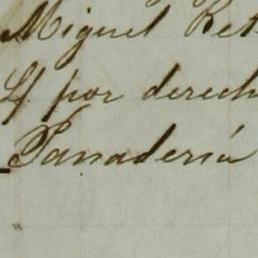 Miguel Ret
por derech
Panadería